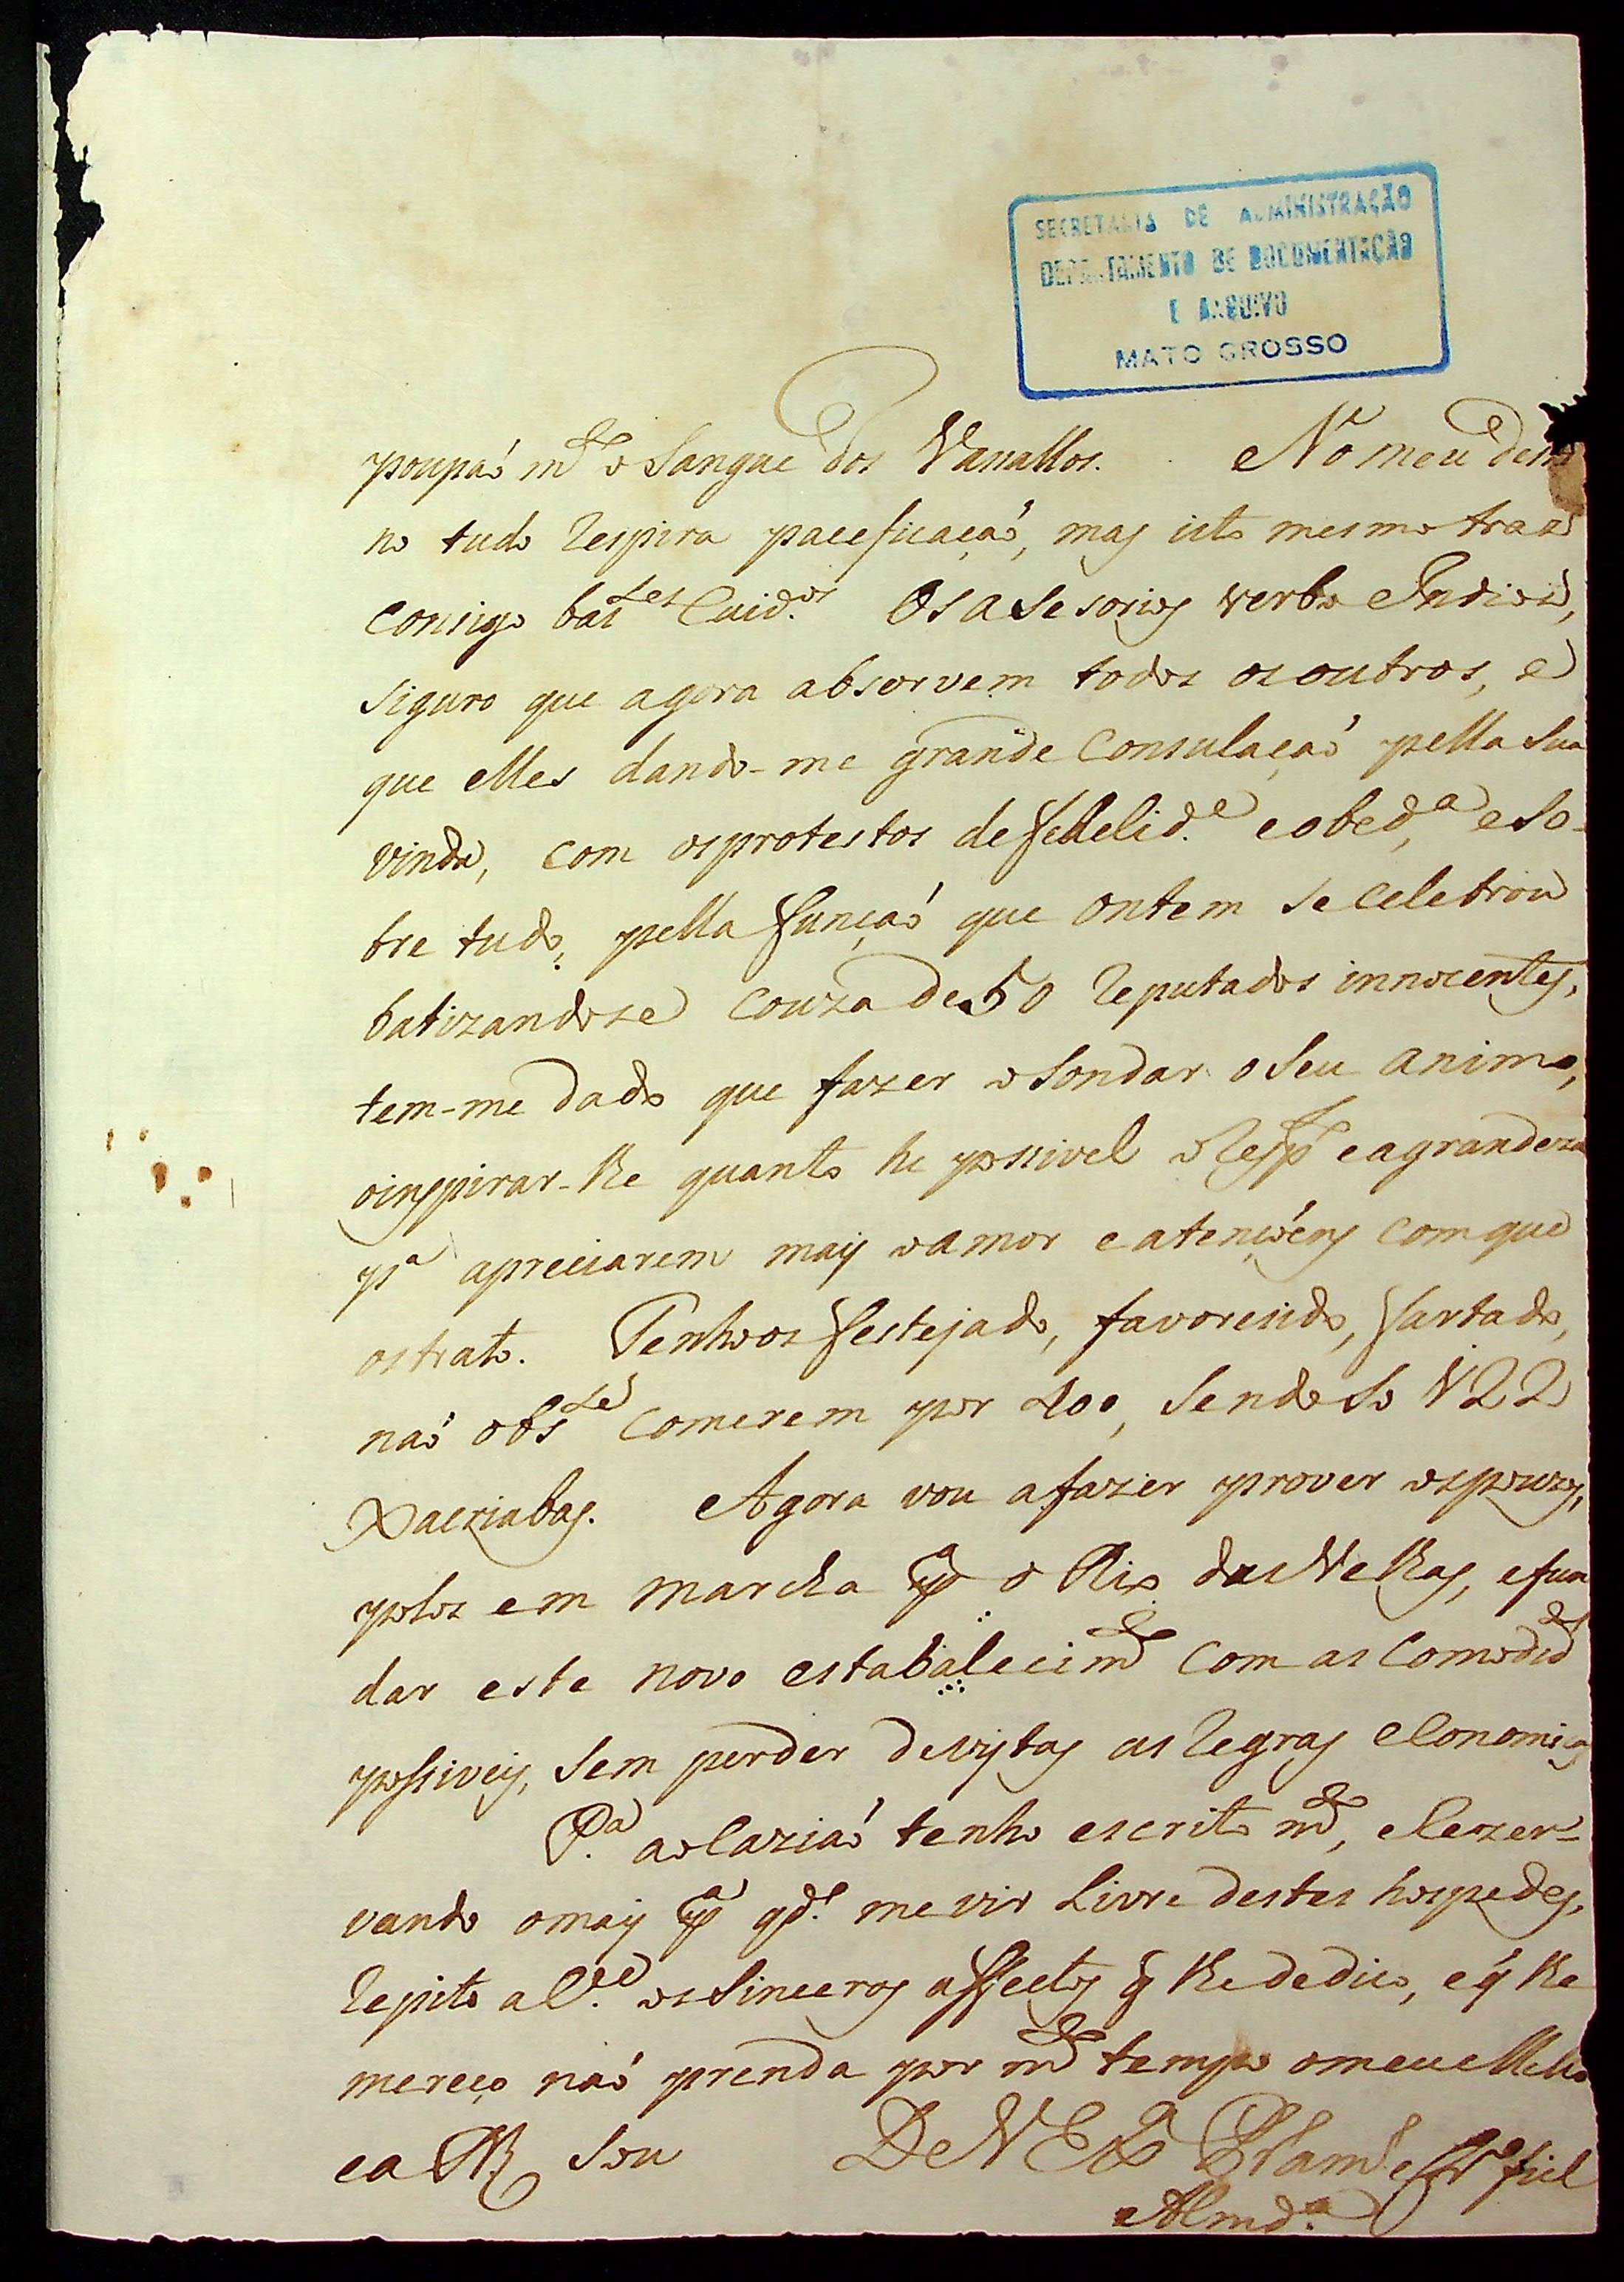 SECRETARIA DE ADMINISTRAÇÃO
DEPARTAMENTO DE DOCUMENTAÇÃO
E ARQUIVO
MATO GROSSO
poupaó m.to o Sangue dos Vassallos. No meu
no tudo respira paceficaçaó, mas isto mesmo traz
consigo bas.tes Cuid.os Os asesorios verbo Indios,
siguro que agora absorvem todos os outros, e
que elles dando-me grande Consulaçaó pella Sua
vinda, com os protestos de fedelid.e e obed.a, e so-
bre tudo, pella funçaó que ontem se celebrou
batizandose couza de 50 reputados innocentes,
tem-me dado que fazer o sondar o seu animo,
o inspirar-lhe quanto he possivel o resp.to e a grandeza
p.a apreciarem mais o amor e atençoéns com que
os trato. Tenhoos festejado, favorecido, fartado,
naó obs.te comerem por 400, sendo só 122
Xacriabas. Agora vou a fazer prover os pouzos,
polos em marcha p.a o Rio das Velhas, e fun
dar este novo estabalecim.to com as comodid.es
possiveis, sem perder de vistas as regras Economi
P.a ao Caziaó tenho escrito m.to, e Rezer-
vando o mais p.a q.do me vir Livre destes hospedes,
repito a V.e os sinceros affectos q̃ lhe dedico, e q̃ lhe
mereço naó prenda por m.to tempo o meu Mello
e a Sou De V Ex.a am.o e fiel
Almd.a